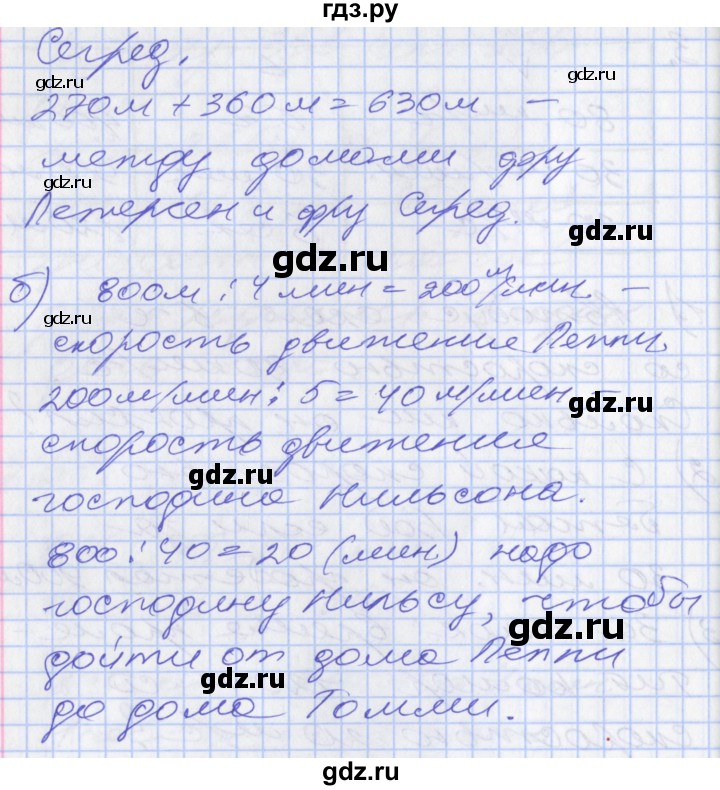 гдз.ру
Сегред.
gdz.ru
270м + 360м = 630м —
между домами фру
gdz.ru gdz.ru
Петерсен и фру Сегред.
gdz.ru
gdz.ru
б) 800м : 4 мин = 200 м/мин. —
gdz.ru
скорость движения Пеппи.
200м/мин : 5 = 40 м/мин —
gdz.ru
скорость движения
gdz.ru
господина Нильсона.
800 : 40 = 20 (мин) надо
gdz.ru
господину Нильсу, чтобы
gdz.ru
дойти от дома Пеппи
gdz.ru
до дома Томми.
gdz.ru